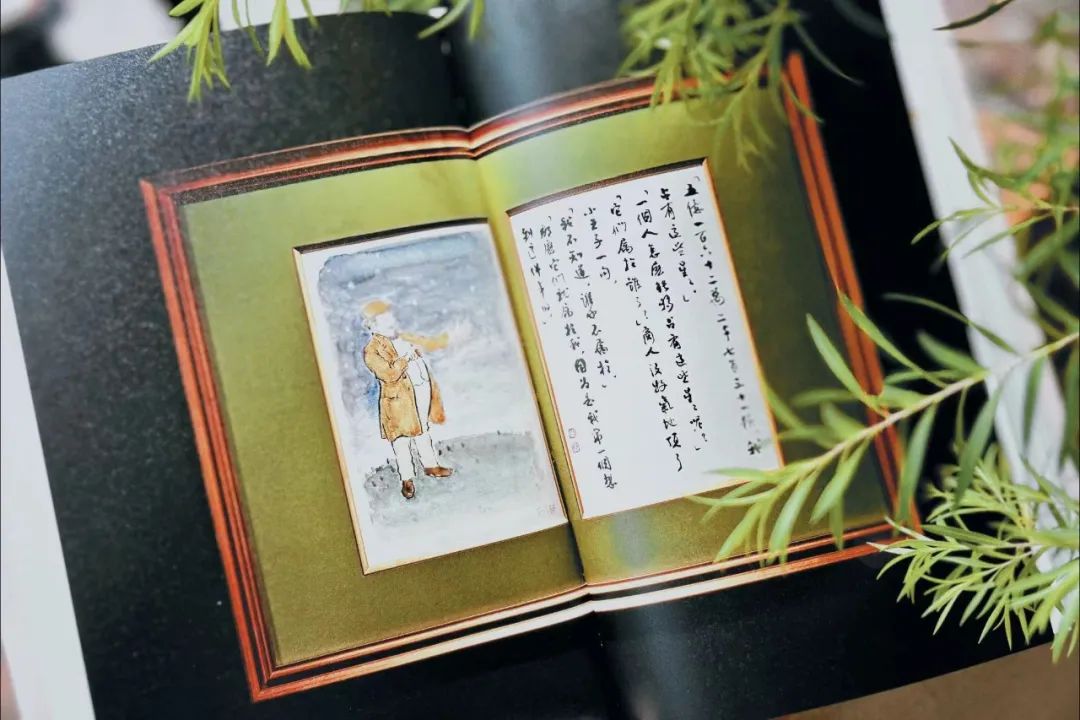 「五億一百六十二萬二千七百三十一顆 我
占有這些星星。」
「一個人怎麼能夠占有這些星星呢？」
「它們属於誰？」商人沒好氣地頂了
小王子一句。
「我不知道，誰都不属於。」
「那麼它們就属於我，因為是我第一個想
到這件事的。」